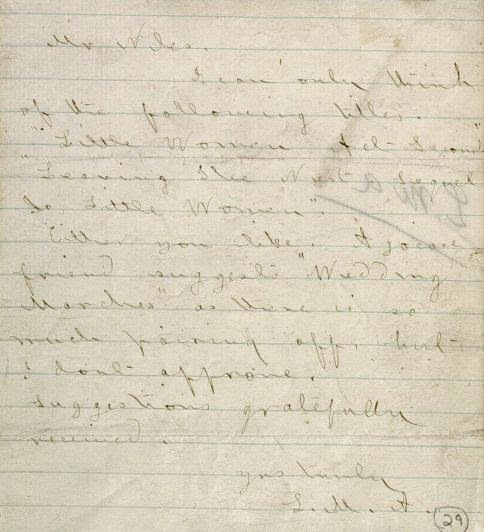 Mr Niles.
I can only think
of the following titles.
"Little Women Act Second"
"Leaving the Nest. Sequel
to Little Women".
Either you like. A jocose
friend suggests "Wedding
Marches" as there is so
much pairing off, but
I dont approve.
Suggestions gratefully
received.
yrs truly
L. M. A.
29